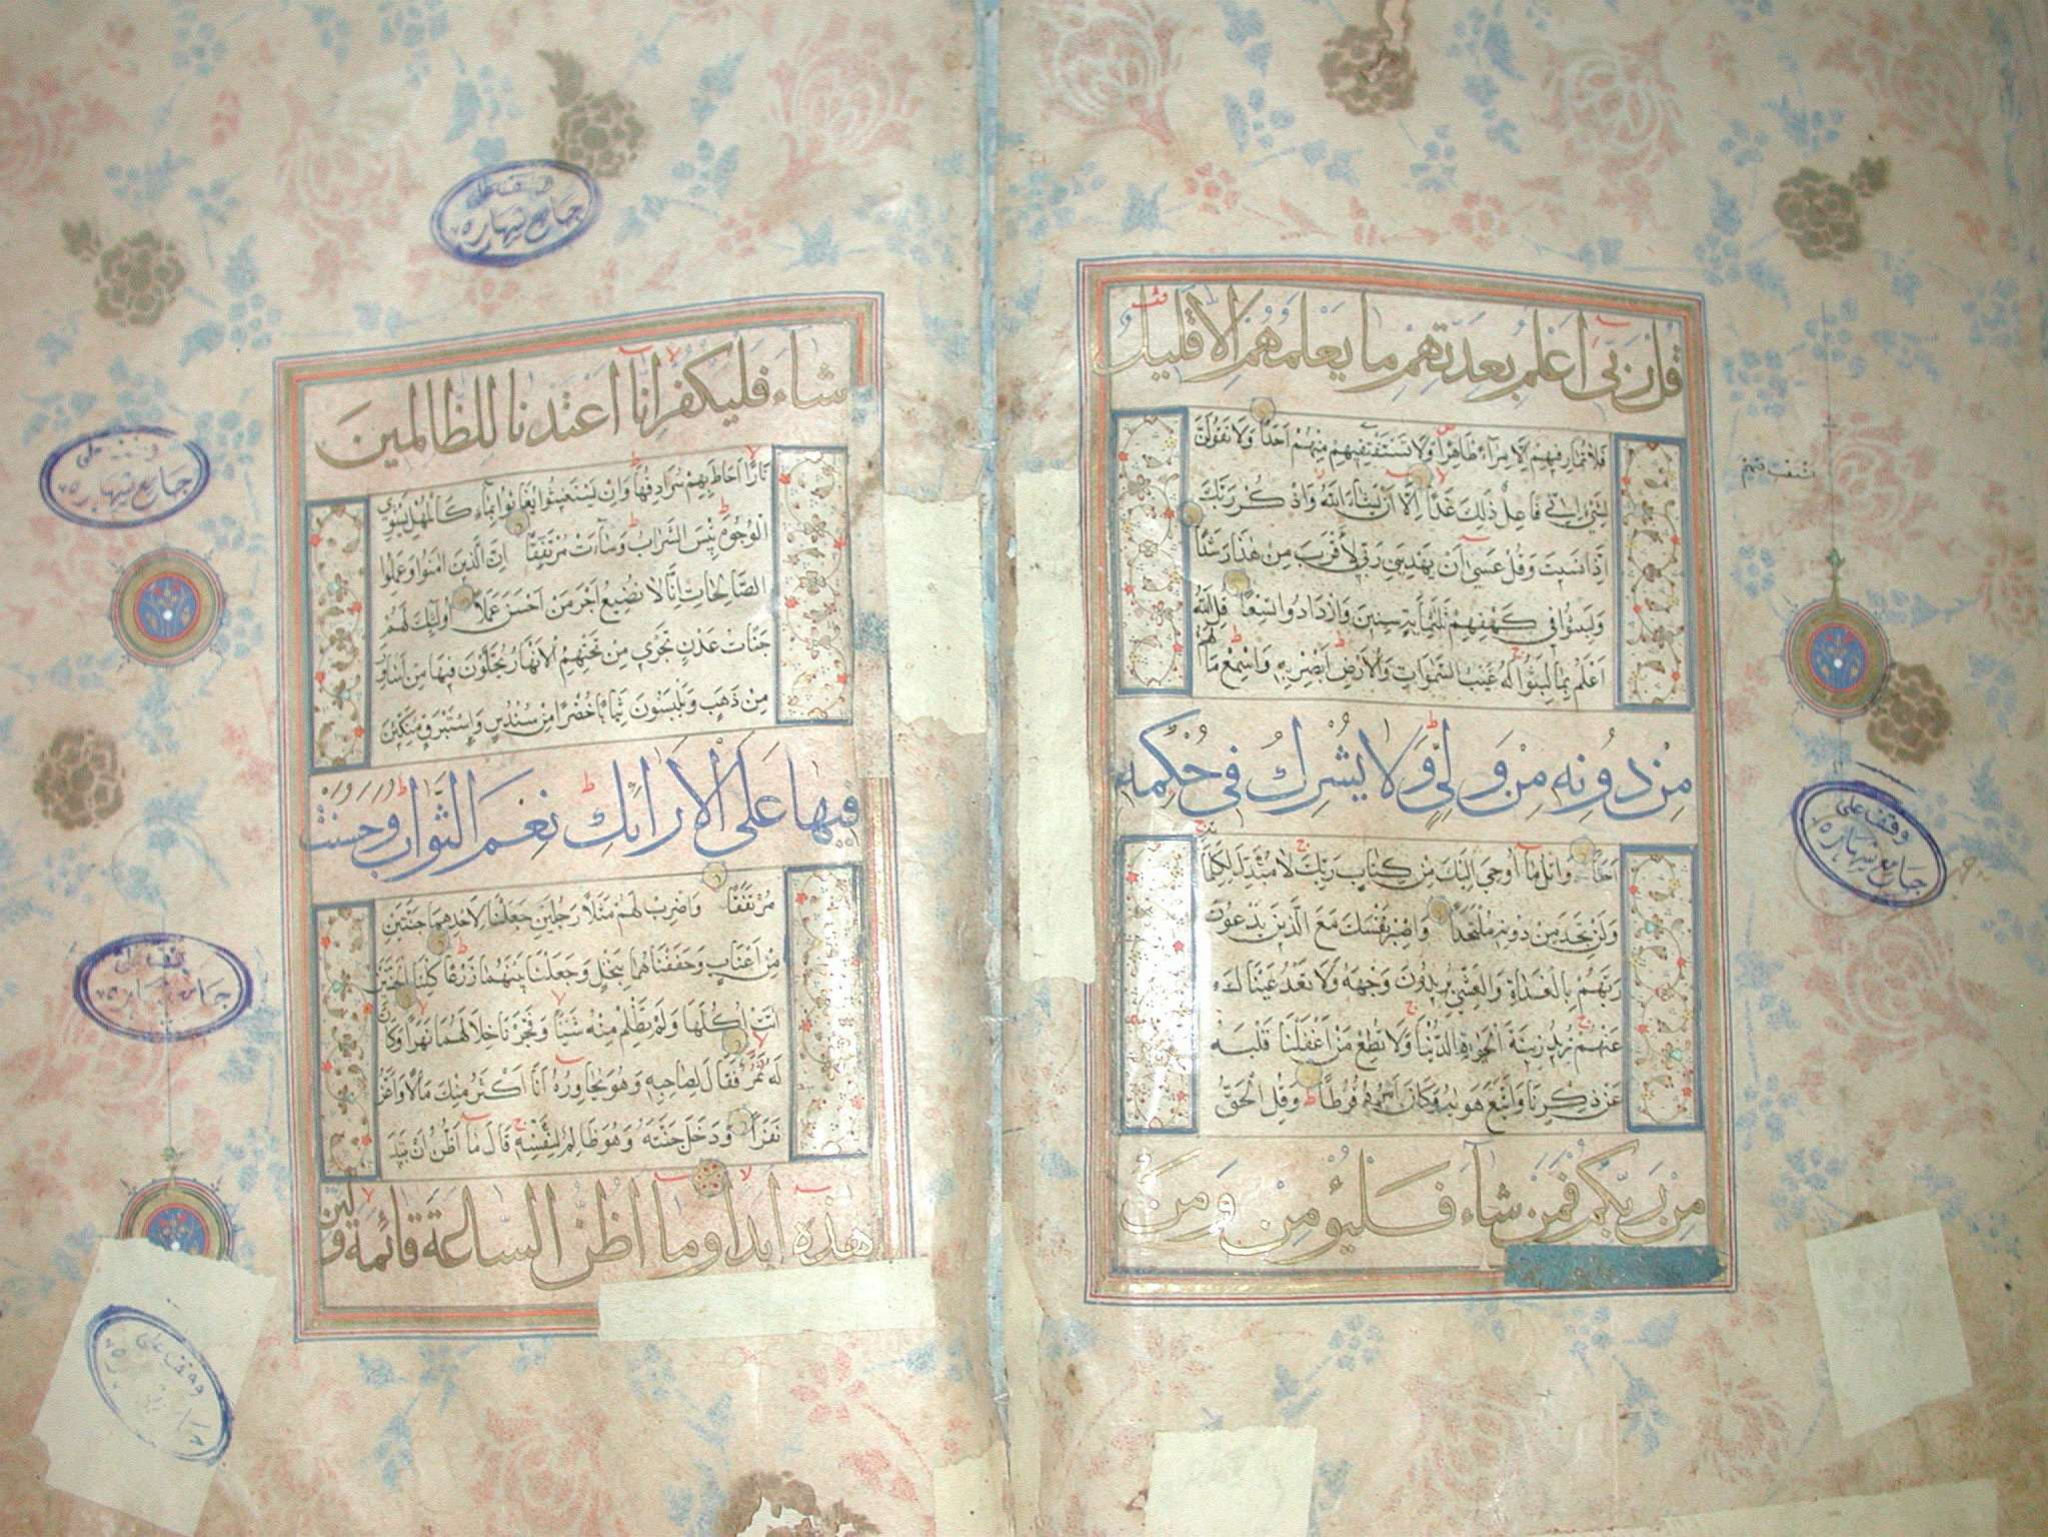 قل ربى اعلم بعدتهم ما يعلمهم الا قليل
فلا تمار فيهم الا مراء ظاهرا ولا تستفت فيهم منهم احدا ولا تقولن
لشئ انى فاعل ذلك غدا الا ان يشاء الله واذكر ربك
اذا نسيت وقل عسى ان يهدين ربى لاقرب من هذا رشدا
ولبثوا فى كهفهم ثلثمأية سنين وازدادوا تسعا قل الله
اعلم بما لبثوا له غيب السموات والارض ابصر به واسمع ما لهم
من دونه من ولى ولا يشرك فى حكمه
احدا واتل ما اوحى اليك من كتاب ربك لا مبدل لكلماته
ولن تجد من دونه ملتحدا واصبر نفسك مع الذين يدعون
ربهم بالغداة والعشى يريدون وجهه ولا تعد عيناك
عنهم تريد زينة الحيوة الدنيا ولا تطع من اغفلنا قلبه
عن ذكرنا واتبع هويه وكان امره فرطا وقل الحق
من ربكم فمن شاء فليؤمن ومن
وقف على
جامع شهاره
شاء فليكفر انا اعتدنا للظالمين
نارا احاط بهم سرادقها وان يستغيثوا يغاثوا بماء كالمهل يشوى
الوجوه بئس الشراب وساءت مرتفقا ان الذين امنوا وعملوا
الصالحات انا لا نضيع اجر من احسن عملا اولئك لهم
جنات عدن تجرى من تحتهم الانهار يحلون فيها من اساور
من ذهب ويلبسون ثيابا خضرا من سندس واستبرق متكئين
فيها على الارائك نعم الثواب وحسنت
مرتفقا واضرب لهم مثلا رجلين جعلنا لاحدهما جنتين
من اعناب وحففناهما بنخل وجعلنا بينهما زرعا كلتا الجنتين
اتت اكلها ولم تظلم منه شيئا وفجرنا خلالهما نهرا وكان
له ثمر فقال لصاحبه وهو يحاوره انا اكثر منك مالا واعز
نفرا ودخل جنته وهو ظالم لنفسه قال ما اظن ان تبيد
هذه ابدا وما اظن الساعة قائمة ولئن
وقف على
جامع شهاره
وقف على
جامع شهاره
وقف على
جامع شهاره
وقف على